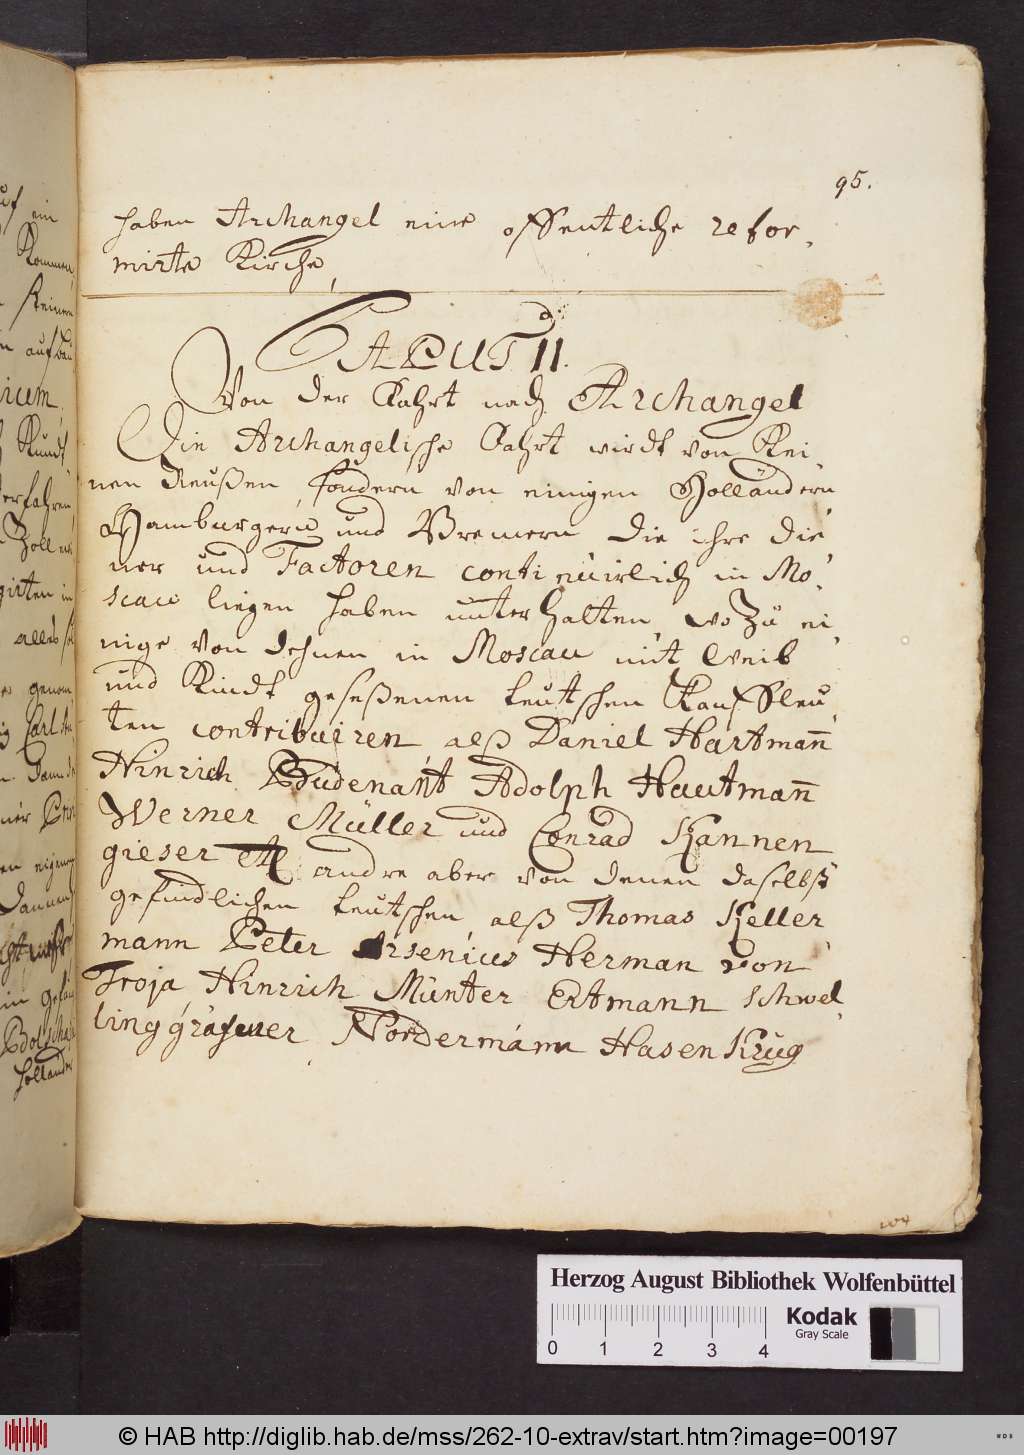 95.
haben Archangel eine offentliche refor,
mirte Kirche,
CAPUT II.
Von der Fahrt nach Archangel
Die Archangelische Fahrt wirdt von Kei,
nen Reußen, sondern von einigen Holländern
Hamburgern und Bremern die ihre die
ner und Factoren continuirlich in Mo,
scau liegen haben unterhalten, wozu ei,
nige von dehnen in Moscau mit Weib
und Kindt geseßenen teutschen Kauffleu,
ten contribuiren alß Daniel Hartmañ
Hinrich Budenant Adolph Hautmañ
Werner Müller und Conrad Kannen
gieser etc andre aber von denen daselbst
gefindlichen teutschen alß Thomas Keller
mann Peter Arsenius Herman von
Troja Hinrich Münter Ertmann Schwel,
linggräfuer Nordermann HasenKrug
Herzog August Bibliothek Wolfenbüttel
Kodak
Gray Scale
0 1 2 3 4
© HAB http://diglib.hab.de/mss/262-10-extrav/start.htm?image=00197